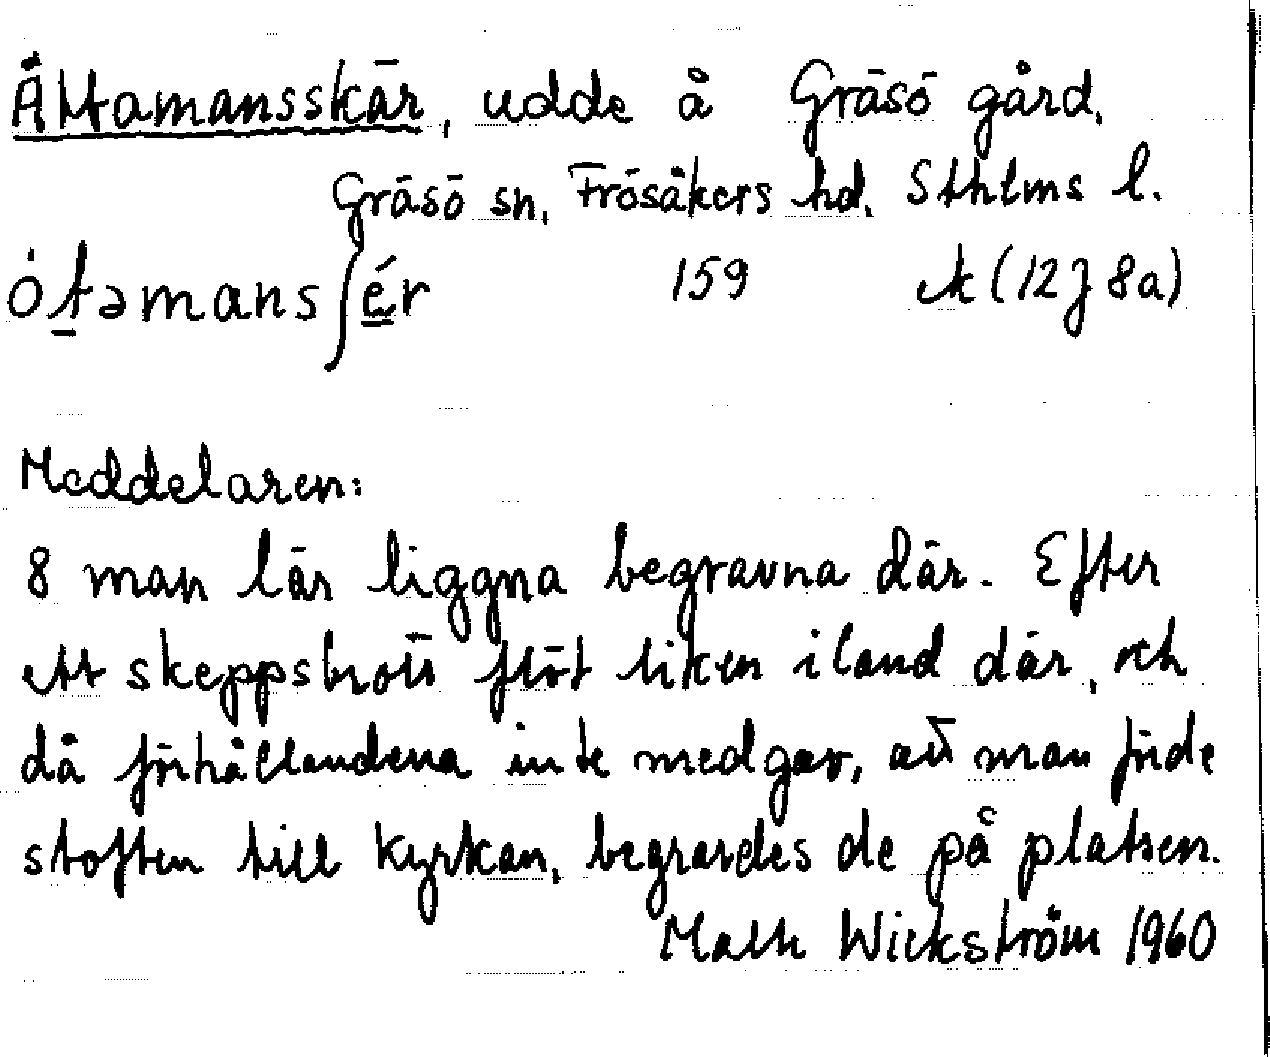 Åttamansskär, udde å Gräsö gård,
Gräsö sn, Frösåkers hd, Sthlms l.
ót̲əmansʃé̲r 159 ek (12J 8a)
Meddelaren:
8 man lär liggna begravna där. Efter
ett skeppsbrott flöt liken iland där, och
då förhållandena inte medgav, att man förde
stoften till kyrkan, begravdes de på platsen.
Wickström 1960